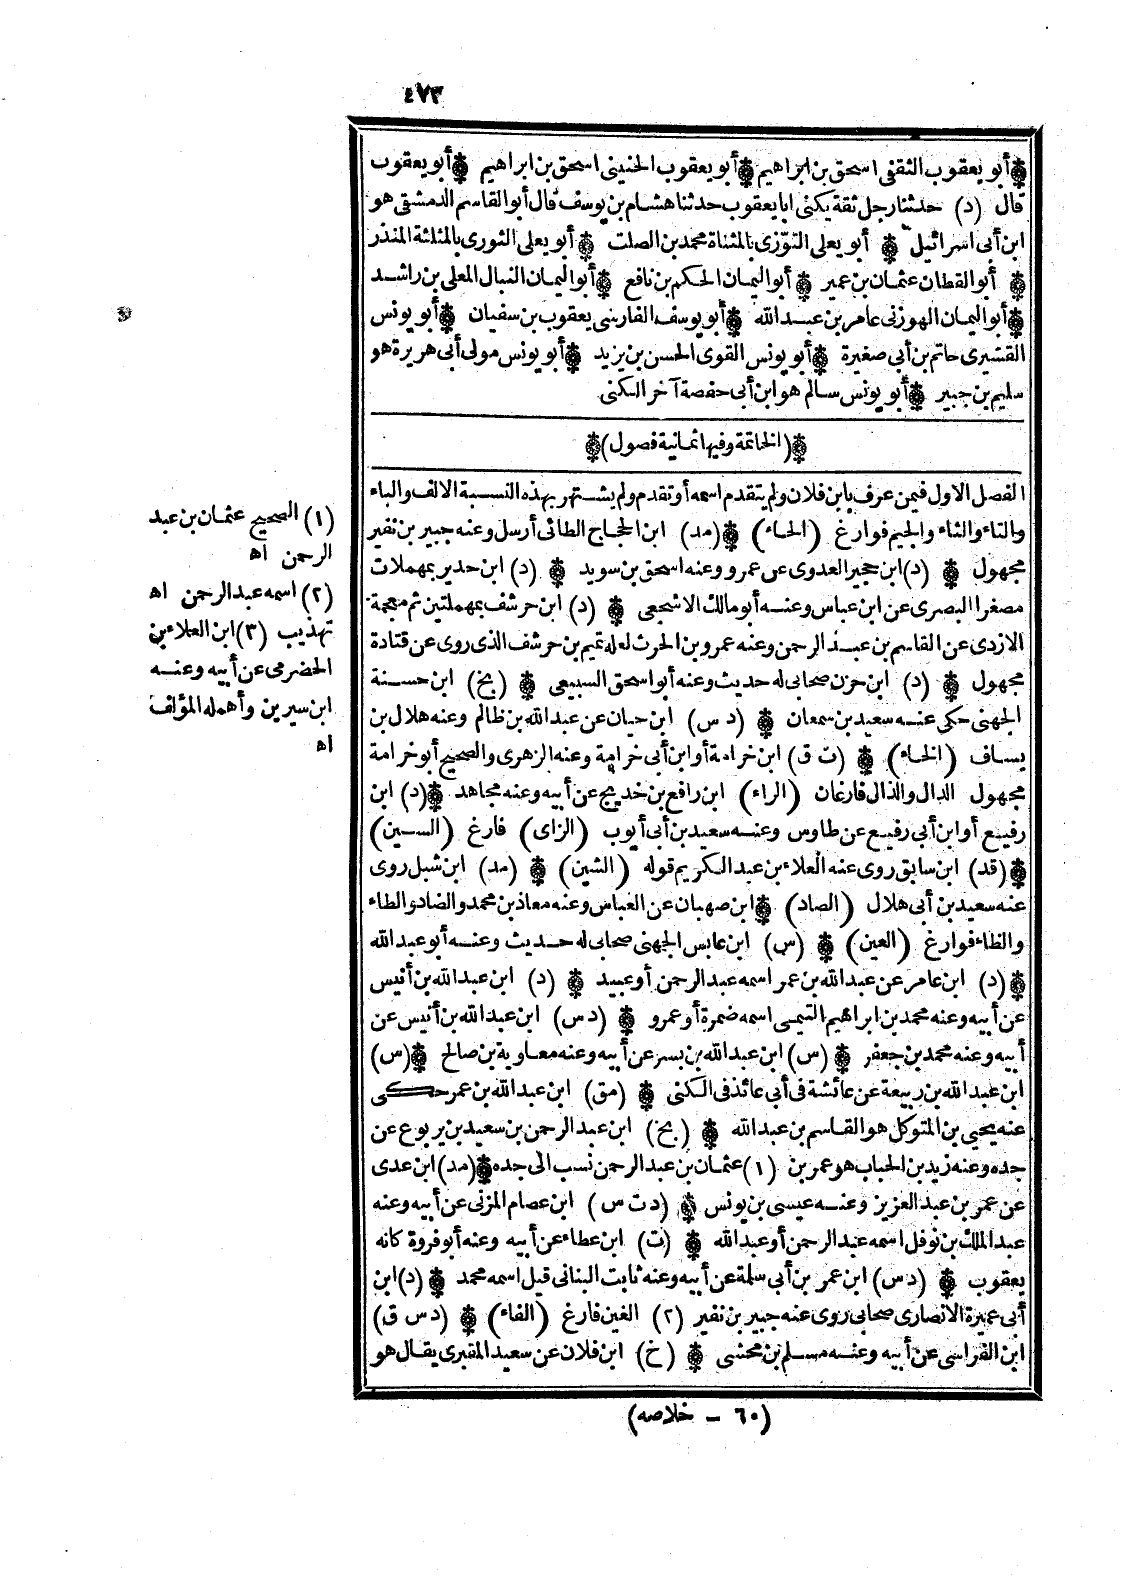 ٤٧٣
❁ أبو يعقوب الثقفى اسحق بن ابراهيم ❁ أبو يعقوب الحنينى اسحق بن ابراهيم ❁ أبو يعقوب
قال (د) حدثنا رجل ثقة يكنى ابا يعقوب حدثنا هشام بن يوسف قال أبو القاسم الدمشقى هو
ابن أبى اسرائيل ❁ أبو يعلى التوّزى بالمثناة محمد بن الصلت ❁ أبو يعلى الثورى بالمثلثة المنذر
❁ أبو القطان عثمان بن عمير ❁ أبو اليمان الحكم بن نافع ❁ أبو اليمان النبال المعلى بن راشد
❁ أبو اليمان الهوزنى عامر بن عبد الله ❁ أبو يوسف الفارسى يعقوب بن سفيان ❁ أبو يونس
القشيرى حاتم بن أبى صغيرة ❁ أبو يونس القوى الحسن بن يزيد ❁ أبو يونس مولى أبى هريرة هو
سليم بن جبير ❁ أبو يونس سالم هو ابن أبى حفصة آخر الكنى
❁ (الخاتمة وفيها ثمانية فصول) ❁
الفصل الاول فيمن عرف بابن فلان ولم يتقدم اسمه أو تقدم ولم يشتهر بهذه النسبة الالف والباء
والتاء والثاء والجيم فوارغ (الحاء) ❁ (مد) ابن الحجاج الطائى أرسل وعنه جبير بن نفير
مجهول ❁ (د) ابن حجير العدوى عن عمرو وعنه اسحق بن سويد ❁ (د) ابن حدير بمهملات
مصغرا البصرى عن ابن عباس وعنه أبو مالك الاشجعى ❁ (د) ابن حرشف بمهملتين ثم معجمة
الازدى عن القاسم بن عبد الرحمن وعنه عمرو بن الحرث لعله تميم بن حرشف الذى روى عن قتادة
مجهول ❁ (د) ابن حزن صحابى له حديث وعنه أبو اسحق السبيعى ❁ (بخ) ابن حسنة
الجهنى حكى عنه سعيد بن سمعان ❁ (د س) ابن حيان عن عبد الله بن ظالم وعنه هلال بن
يساف (الخاء) ❁ (ت ق) ابن خرامة أو ابن أبى خرامة وعنه الزهرى والصحيح أبو خرامة
مجهول الدال والذال فارغان (الراء) ابن رافع بن خديج عن أبيه وعنه مجاهد ❁ (د) ابن
رفيع أو ابن أبى رفيع عن طاوس وعنه سعيد بن أبى أيوب (الزاى) فارغ (السين)
❁ (قد) ابن سابق روى عنه العلاء بن عبد الكريم قوله (الشين) ❁ (مد) ابن شبل روى
عنه سعيد بن أبى هلال (الصاد) ❁ ابن صهبان عن العباس وعنه معاذ بن محمد والضاد والطاء
والظاء فوارغ (العين) ❁ (س) ابن عابس الجهنى صحابى له حديث وعنه أبو عبد الله
❁ (د) ابن عامر عن عبد الله بن عمر اسمه عبد الرحمن أو عبيد ❁ (د) ابن عبد الله بن أنيس
عن أبيه وعنه محمد بن ابراهيم التيمى اسمه ضمرة أو عمرو ❁ (د س) ابن عبد الله بن أنيس عن
أبيه وعنه محمد بن جعفر ❁ (س) ابن عبد الله بن بسر عن أبيه وعنه معاوية بن صالح ❁ (س)
ابن عبد الله بن ربيعة عن عائشة فى أبى عائذ فى الكنى ❁ (مق) ابن عبد الله بن عمر حكى
عنه يحيى بن المتوكل هو القاسم بن عبد الله ❁ (بخ) ابن عبد الرحمن بن سعيد بن يربوع عن
جده وعنه زيد بن الحباب هو عمر بن (١) عثمان بن عبد الرحمن نسب الى جده ❁ (مد) ابن عدى
عن عمر بن عبد العزيز وعنه عيسى بن يونس ❁ (د ت س) ابن عصام المزنى عن أبيه وعنه
عبد الملك بن نوفل اسمه عبد الرحمن أو عبد الله ❁ (ت) ابن عطاء عن أبيه وعنه أبو فروة كانه
يعقوب ❁ (د س) ابن عمر بن أبى سلمة عن أبيه وعنه ثابت البنانى قيل اسمه محمد ❁ (د) ابن
أبى عميرة الانصارى صحابى روى عنه جبير بن نفير (٢) الغين فارغ (الفاء) ❁ (د س ق)
ابن الفراسى عن أبيه وعنه مسلم بن مخشى ❁ (خ) ابن فلان عن سعيد المقبرى يقال هو
(١) الصحيح عثمان بن عبد
الرحمن اه
(٢) اسمه عبد الرحمن اه
تهذيب (٣) ابن العلاء بن
الحضرمى عن أبيه وعنه
ابن سيرين وأهمله المؤلف
اه
(٦٠ – خلاصه)